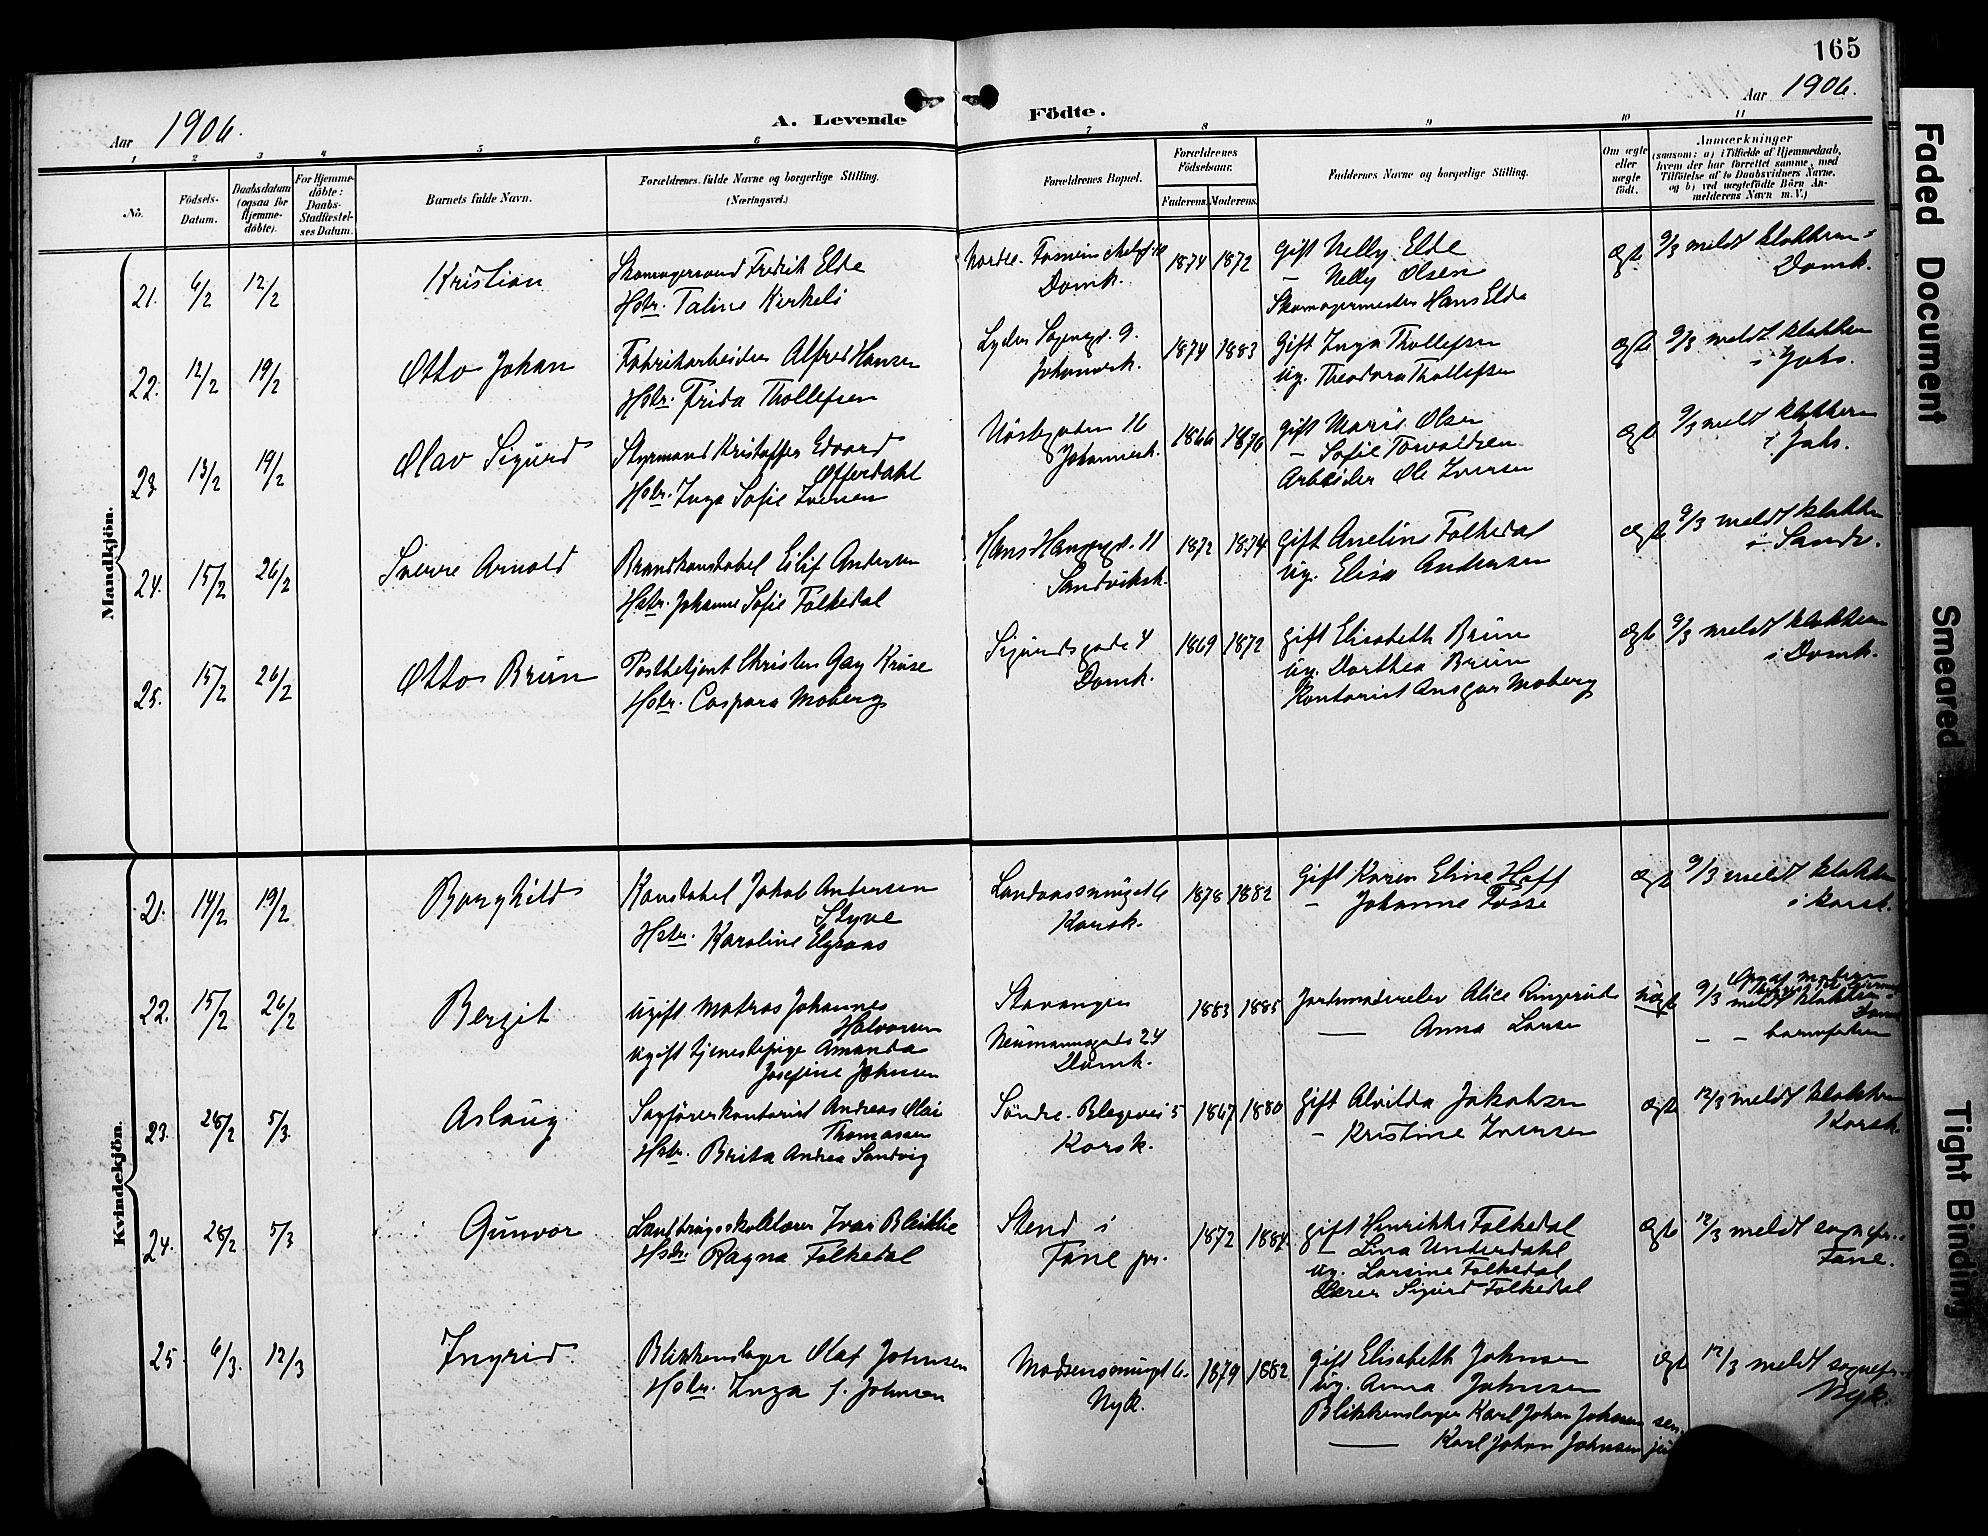 165
Aar 1906.
A. Levende Födte.
Aar 1906.
1 2 3 4 5 6 7 8 9 10 11
No.
Födsels-
Datum.
Daabsdatum
(ogsaa for
Hjemme-
döbte).
For Hjemme-
döbte:
Daabs-
Stadfæstel-
ses Datum.
Barnets fulde Navn.
Forældrenes fulde Navne og borgerlige Stilling.
(Næringsvei.)
Forældrenes Bopæl.
Forældrenes
Födselsaar.
Faderens. Moderens.
Faddernes Navne og borgerlige Stilling.
Om ægte
eller
uægte
födt.
Anmærkninger
(saasom: a) i Tilfælde af Hjemmedaab,
hvem der har forrettet samme, med
Tilföielse af to Daabsvidners Navne,
og b) ved uægtefödte Börn An-
melderens Navn m. V.)
Mandkjön.
21. 6/2 12/2 Kristian
Skomagersvend Fredrik Elde
Hstr. Taline Kirkeli
Domk.
1874 1872
Gift Nelly Elde
— Nelly Olsen
Skomagermester Hans Elde
ægte 9/3 meldt klokkeren i
Domk.
22. 12/2 19/2 Otto Johan
Fabrikarbeider Alfred Hansen
Hstr. Frida Thollefsen
Lyder Sagensgd. 9.
Johannesk.
1874 1883
Gift Inga Thollefsen
ug. Theodora Thollefsen
ægte 9/3 meldt klokkeren
i Johs.
23. 13/2 19/2 Olav Sigurd
Styrmand Kristoffer Edvard
Offerdahl
Hstr. Inga Sofie Iversen
Nöstegaden 16
Johannesk.
1866 1876
Gift Marie Olsen
— Sofie Torvaldsen
Arbeider Ole Iversen
ægte 9/3 meldt klokkeren
i Johs.
24. 15/2 26/2 Sverre Arnold
Brandkonstabel Eilif Andersen
Hstr. Johanne Sofie Folkedal
Hans Haugesgd. 11
Sandviksk.
1872 1874
Gift Aneline Folkedal
ug. Elisa Andersen
ægte 9/3 meldt klokken
i Sandv.
25. 15/2 26/2 Otto Brun
Postbetjent Christen Gay Kruse
Hstr. Caspara Moberg
Sigurdsgade 4
Domk.
1869 1872
Gift Elisabeth Brun
ug. Dorthea Brun
Kontorist Ansgar Moberg
ægte 9/3 meldt klokkeren
i Domk.
Kvindekjön.
21. 14/2 19/2 Borghild
Konstabel Jakob Andersen
Styve
Hstr. Karoline
Landaassmuget 6
Korsk.
1878 1882
Gift Karen Eline Hoff
— Johanne Fosse
ægte 9/3 meldt klokken
i Korsk.
22. 15/2 26/2 Bergit
Ugift Matros Johannes
Halvorsen
Ugift tjenestepige Amanda
Josefine Johnsen
Stavanger
Neumannsgade 24
Domk.
1883 1885
Jordmoderelev Alice Ringerud
— Anna Larsen
uægte 9/3 meldt klokkeren i
Domk.
— — barnefaren
23. 28/2 5/3 Aslaug
Sagförerkontorist Andreas Olai
Thomassen
Hstr. Brita Andrea Sandvig
Söndre Blegevei 5
Korsk.
1867 1880
Gift Alvilda Jakobsen
— Kristine Iversen
ægte 12/3 meldt klokkeren
Korsk.
24. 28/2 5/3 Gunvor
Landbrugsskolelærer Ivar Bleiklie
Hstr. Ragna Folkedal
Stend i
Fane pr.
1872 1884
Gift Henrikke Folkedal
— Lina Underdahl
ug. Larsine Folkedal
Sigurd Folkedal
ægte 12/3 meldt sognepr. i
Fane.
25. 6/3. 12/3 Ingrid
Blikkenslager Olaf Johnsen
Hstr. Inga f. Johnsen
Madsensmuget 6.
Nyk.
1879 1882
Gift Elisabeth Johnsen
ug. Anna Johnsen
Blikkenslager Karl Johan Johnsen sen.
— Karl Johan Johnsen jun
ægte 12/3 meldt sognepr.
Nyk.
Faded Document
Smeared
Tight Binding